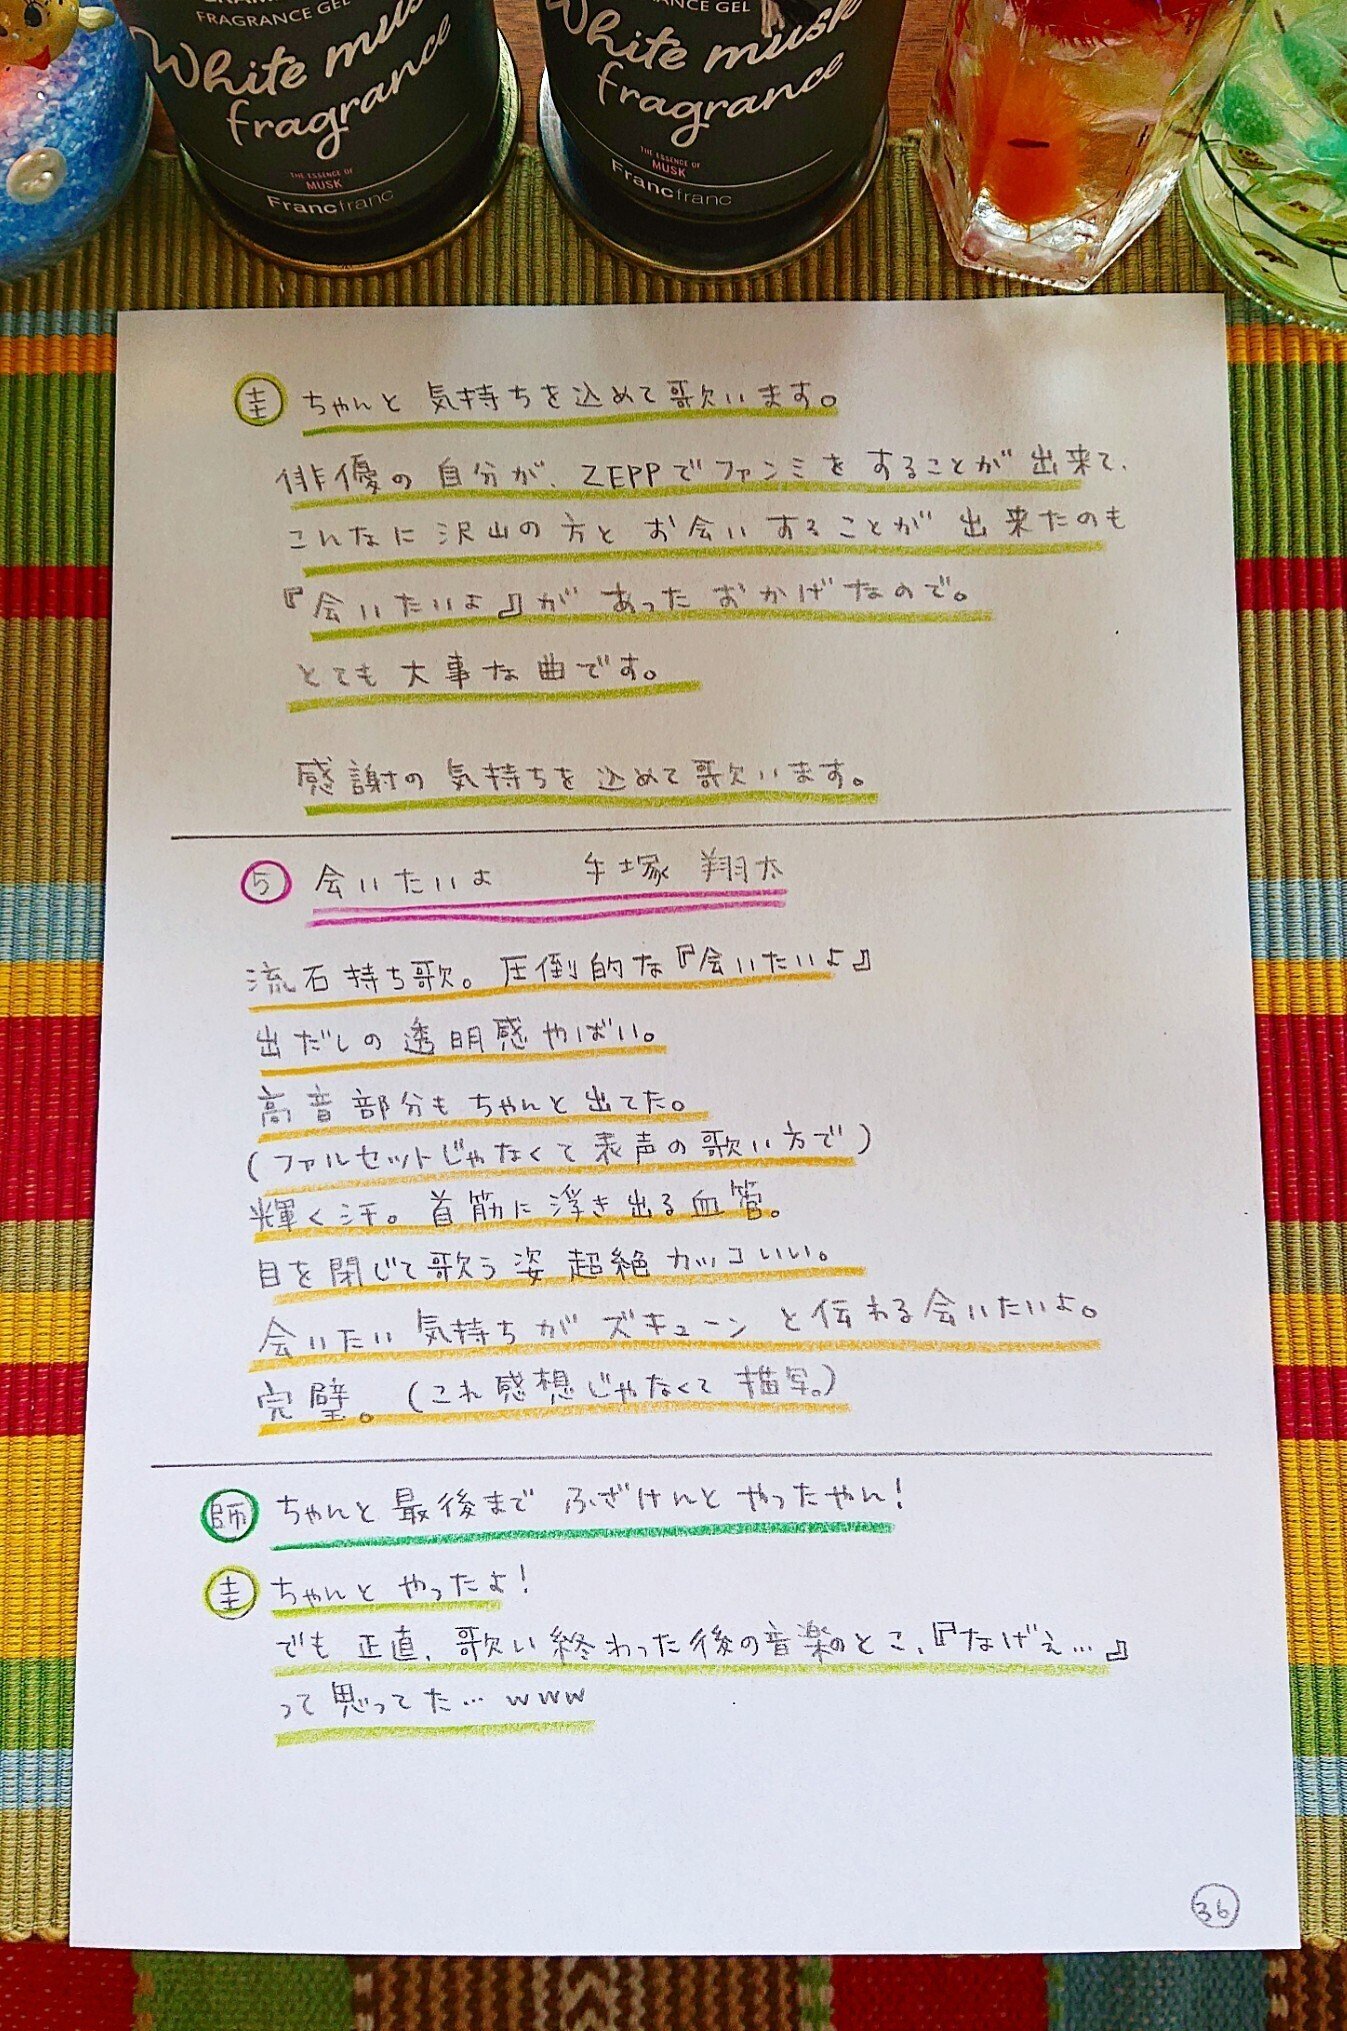 FRAGRANCE GEL
White musk
fragrance
THE ESSENCE OF
MUSK
Francfranc
FRAGRANCE GEL
White musk
fragrance
THE ESSENCE OF
MUSK
Francfranc
圭 ちゃんと気持ちを込めて歌います。
俳優の自分が、ZEPPでファンミをすることが出来て、
こんなに沢山の方とお会いすることが出来たのも
『会いたいよ』があったおかげなので。
とても大事な曲です。
感謝の気持ちを込めて歌います。
⑤ 会いたいよ 手塚翔太
流石持ち歌。圧倒的な『会いたいよ』
出だしの透明感やばい。
高音部分もちゃんと出てた。
(ファルセットじゃなくて表声の歌い方で)
輝く汗。首筋に浮き出る血管。
目を閉じて歌う姿超絶カッコいい。
会いたい気持ちがズキューンと伝わる会いたいよ。
完璧。(これ感想じゃなくて描写。)
師 ちゃんと最後までふざけんとやったやん!
圭 ちゃんとやったよ!
でも正直、歌い終わった後の音楽のとこ、『なげぇ…』
って思ってた…www
36